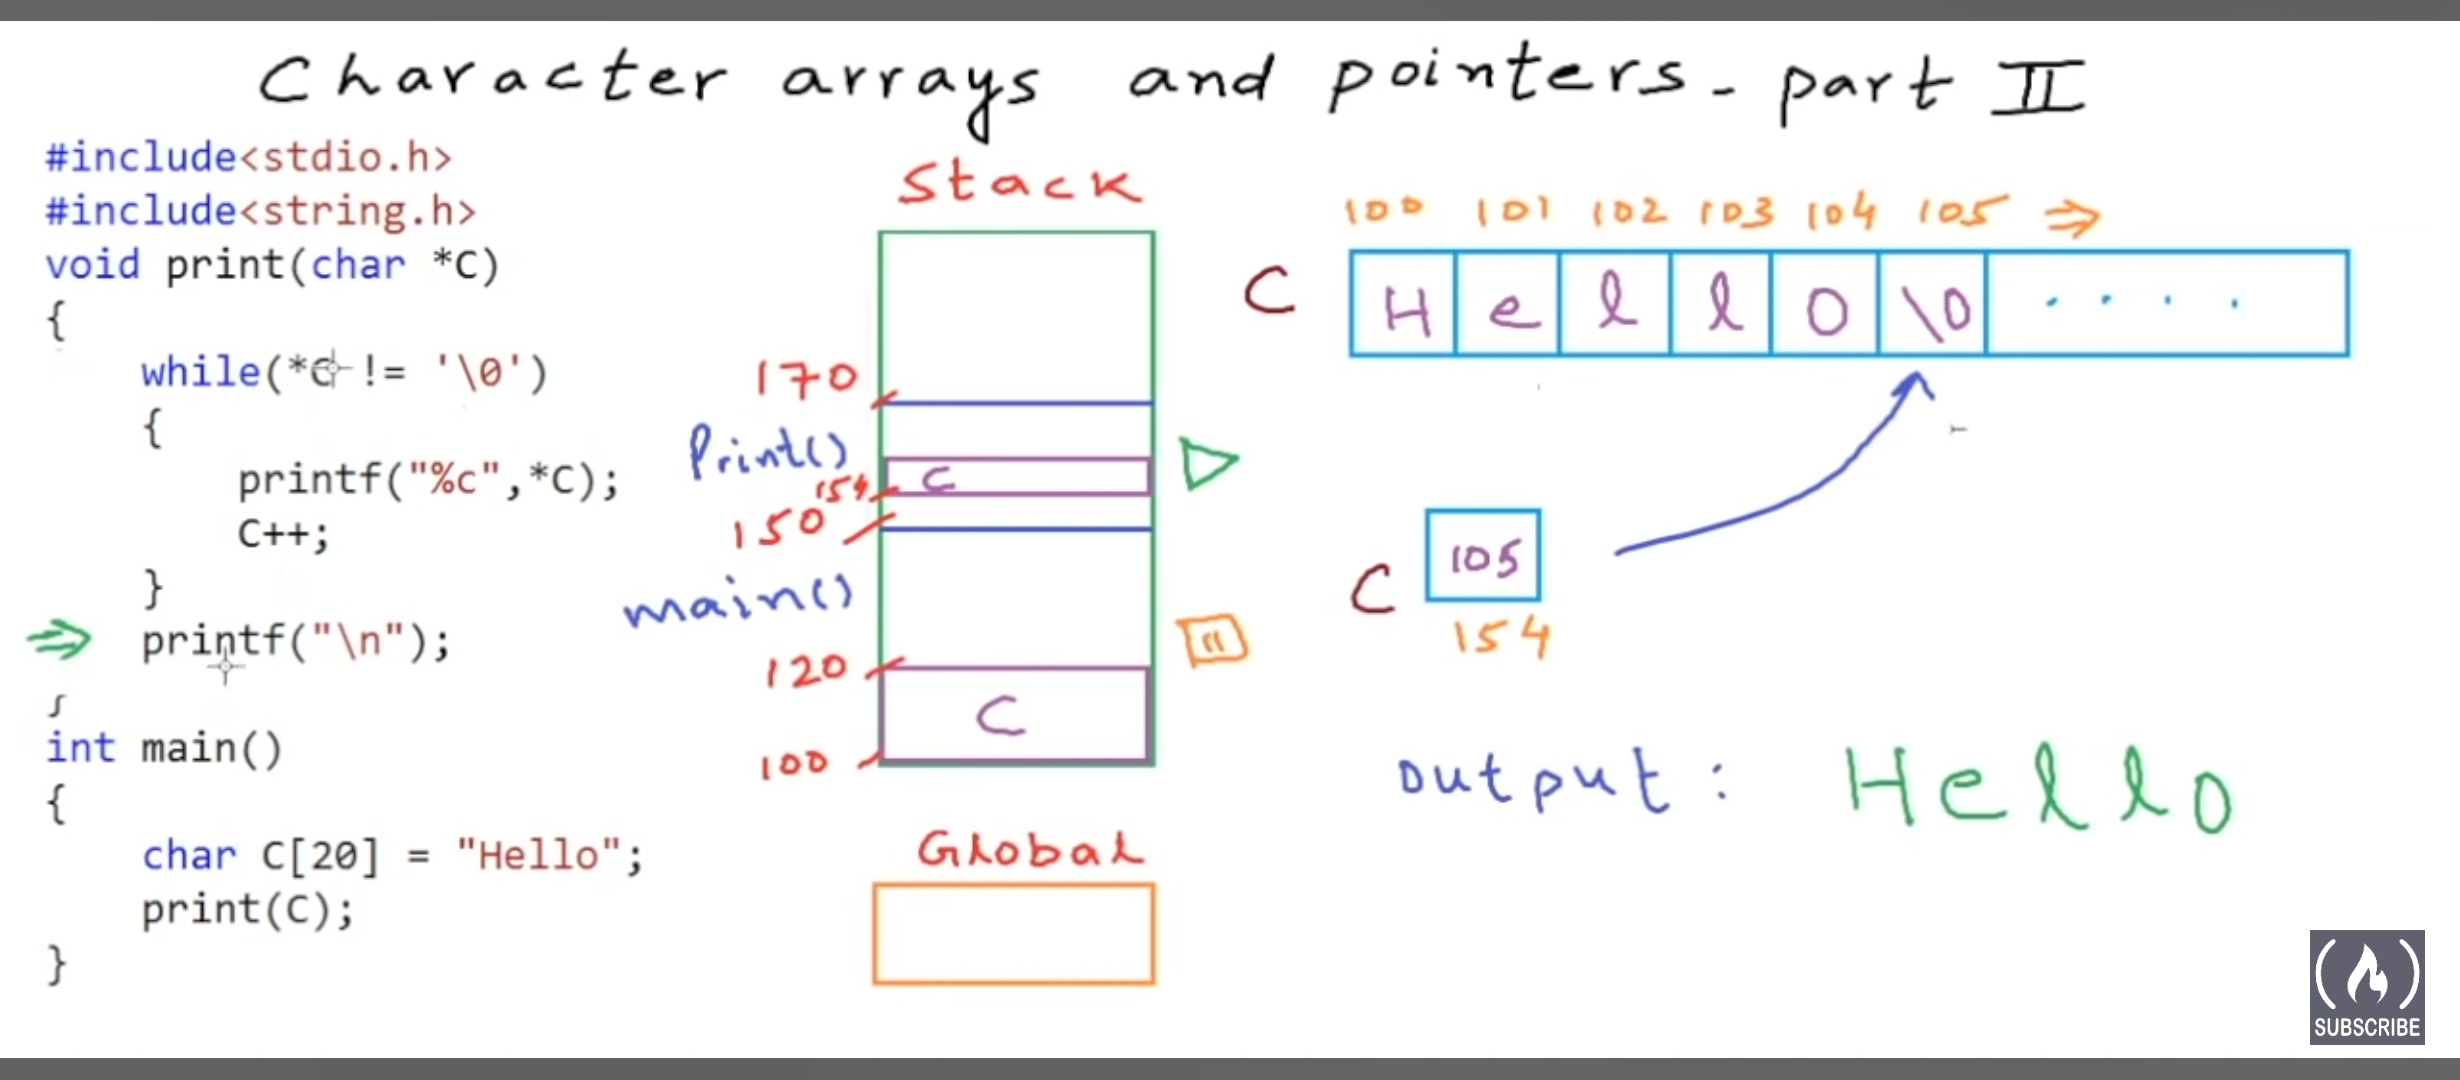 Character arrays and pointers - part II
#include<stdio.h>
#include<string.h>
void print(char *C)
{
while(*C != '\0')
{
printf("%c",*C);
C++;
}
printf("\n");
int main()
{
char C[20] = "Hello";
print(C);
}
Stack
170
Print()
C
154
150
main()
120
C
100
Global
100 101 102 103 104 105
C H e l l o \0 . . . .
C 105
154
Output: Hello
SUBSCRIBE